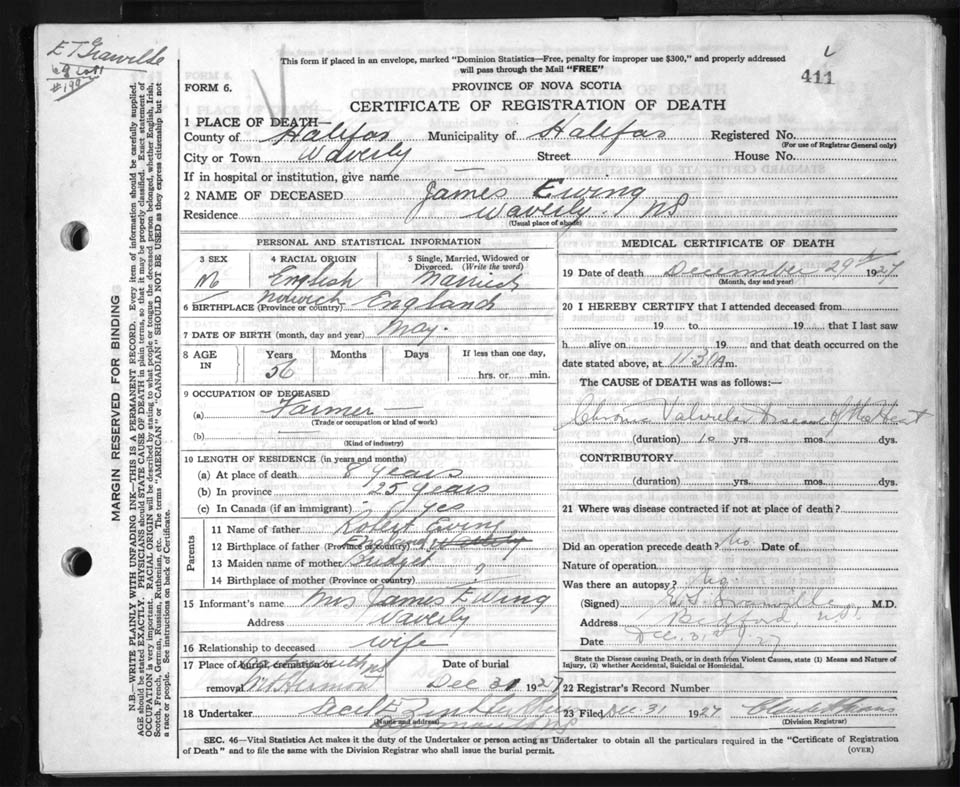 E T Granville
#199
This form if placed in an envelope, marked "Dominion Statistics—Free, penalty for improper use $300," and properly addressed
will pass through the Mail "FREE"
411
FORM 6.
PROVINCE OF NOVA SCOTIA
CERTIFICATE OF REGISTRATION OF DEATH
1 PLACE OF DEATH
County of Halifax Municipality of Halifax Registered No.
(For use of Registrar General only)
City or Town Waverly Street House No.
If in hospital or institution, give name —
2 NAME OF DECEASED James Ewing
Residence Waverly. NS
(Usual place of abode)
PERSONAL AND STATISTICAL INFORMATION
3 SEX
M
4 RACIAL ORIGIN
English
5 Single, Married, Widowed or
Divorced. (Write the word)
Married
6 BIRTHPLACE (Province or country) Norwich England
7 DATE OF BIRTH (month, day and year) May.
8 AGE IN
Years Months Days If less than one day,
56 hrs. or min.
9 OCCUPATION OF DECEASED
(a) Farmer —
(Trade or occupation or kind of work)
(b) —
(Kind of industry)
10 LENGTH OF RESIDENCE (in years and months)
(a) At place of death 8 years
(b) In province 25 years
(c) In Canada (if an immigrant) yes
Parents
11 Name of father Robert Ewing
12 Birthplace of father (Province or country) England
13 Maiden name of mother Bridget
14 Birthplace of mother (Province or country) ?
15 Informant's name Mrs James Ewing
Address Waverly
16 Relationship to deceased wife
17 Place of burial, cremation or Date of burial
removal Mt Hermon Dec 31 1927
18 Undertaker Cecil E
Name and address
MEDICAL CERTIFICATE OF DEATH
19 Date of death December 29th 1927
(Month, day and year)
20 I HEREBY CERTIFY that I attended deceased from
19 to 19 that I last saw
h alive on 19 and that death occurred on the
date stated above, at 11.30 A m.
The CAUSE OF DEATH was as follows:—
Chronic Valvular Disease of the Heart
(duration) 10 yrs. mos. dys.
CONTRIBUTORY.
(duration) yrs. mos. dys.
21 Where was disease contracted if not at place of death?
Did an operation precede death? No. Date of
Nature of operation
Was there an autopsy? No.
(Signed) M.D.
Address Bedford, N.S.
Date Dec. 31 1927
State the Disease causing Death, or in death from Violent Causes, state (1) Means and Nature of
Injury, (2) whether Accidental, Suicidal or Homicidal.
22 Registrar's Record Number
23 Filed Dec. 31 1927
(Division Registrar)
SEC. 46—Vital Statistics Act makes it the duty of the Undertaker or person acting as Undertaker to obtain all the particulars required in the "Certificate of Registration
of Death" and to file the same with the Division Registrar who shall issue the burial permit.
(OVER)
MARGIN RESERVED FOR BINDING
N.B.—WRITE PLAINLY WITH UNFADING INK—THIS IS A PERMANENT RECORD. Every item of information should be carefully supplied.
AGE should be stated EXACTLY. PHYSICIANS should STATE CAUSE OF DEATH in plain terms, so that it may be properly classified. Exact statement of
OCCUPATION is very important. RACIAL ORIGIN will be described by stating to what people or tongue the deceased person belonged, whether English, Irish,
Scotch, French, German, Russian, Ruthenian, etc. The terms "AMERICAN" or "CANADIAN" SHOULD NOT BE USED as they express citizenship but not
a race or people. See instructions on back of Certificate.